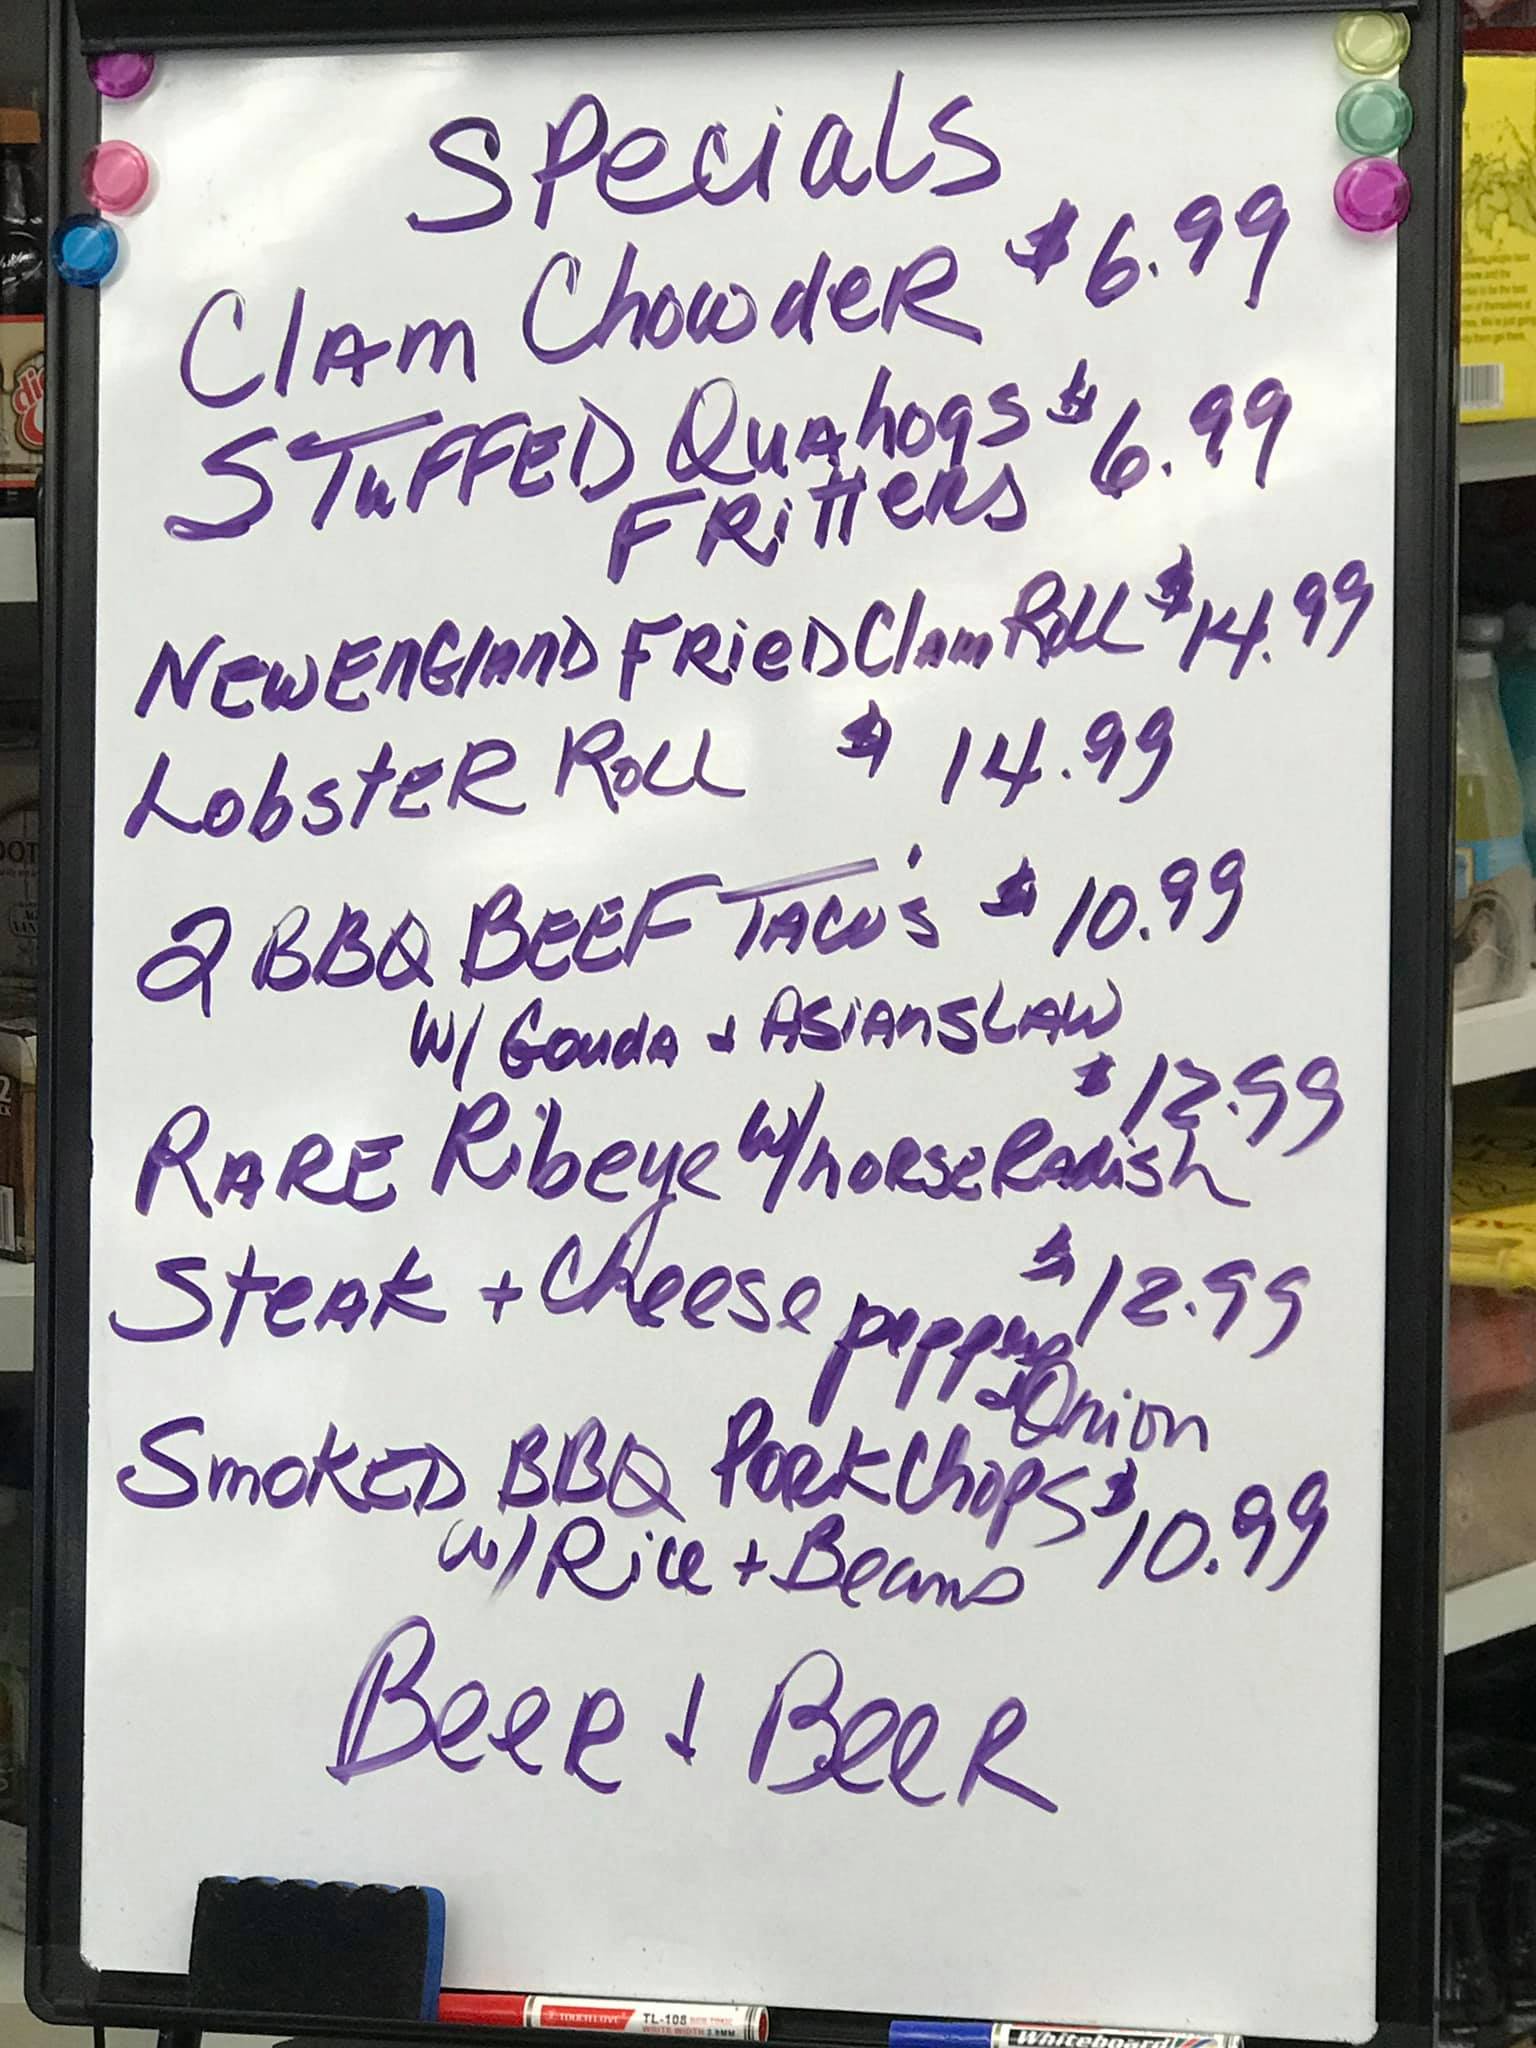 Specials
Clam Chowder $6.99
Stuffed Quahogs $6.99
Fritters
New England Fried Clam Roll $14.99
Lobster Roll $14.99
2 BBQ Beef Taco's $10.99
w/ Gouda + Asian Slaw
$12.99
Rare Ribeye w/ horseradish
Steak + Cheese $12.99
peppers
+ Onion
Smoked BBQ Pork Chops $10.99
w/ Rice + Beans
Beer + Beer
TL-108
Whiteboard